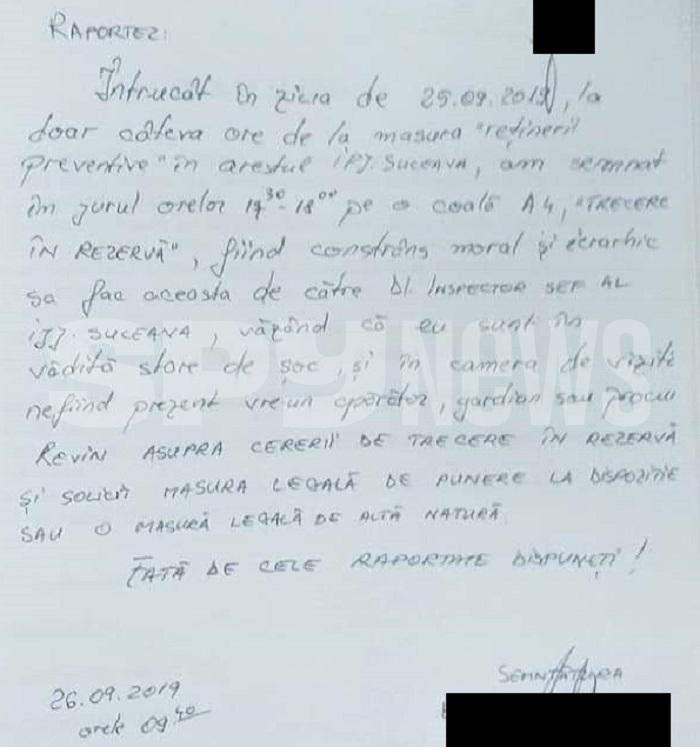 RAPORTEZ:
Întrucât în ziua de 25.09.2019, la
doar câteva ore de la masura "reținerii
preventive" în arestul IPJ. SUCEAVA, am semnat
în jurul orelor 17³⁰-18⁰⁰ pe o coală A4, "TRECERE
ÎN REZERVĂ", fiind constrâns moral și ierarhic
sa fac aceasta de către Dl. INSPECTOR SEF AL
IJJ. SUCEAVA, văzând că eu sunt în
vădită stare de șoc, și în camera de vizite
nefiind prezent vre un apărător, gardian sau procu
REVIN ASUPRA CERERII DE TRECERE ÎN REZERVĂ
ȘI SOLICIT MASURA LEGALĂ DE PUNERE LA DISPOZITIE
SAU O MASURĂ LEGALĂ DE ALTĂ NATURĂ.
FATĂ DE CELE RAPORTATE DISPUNEȚI!
SEMNĂTURA
26.09.2019
orele 09⁴⁰
SPYNEWS